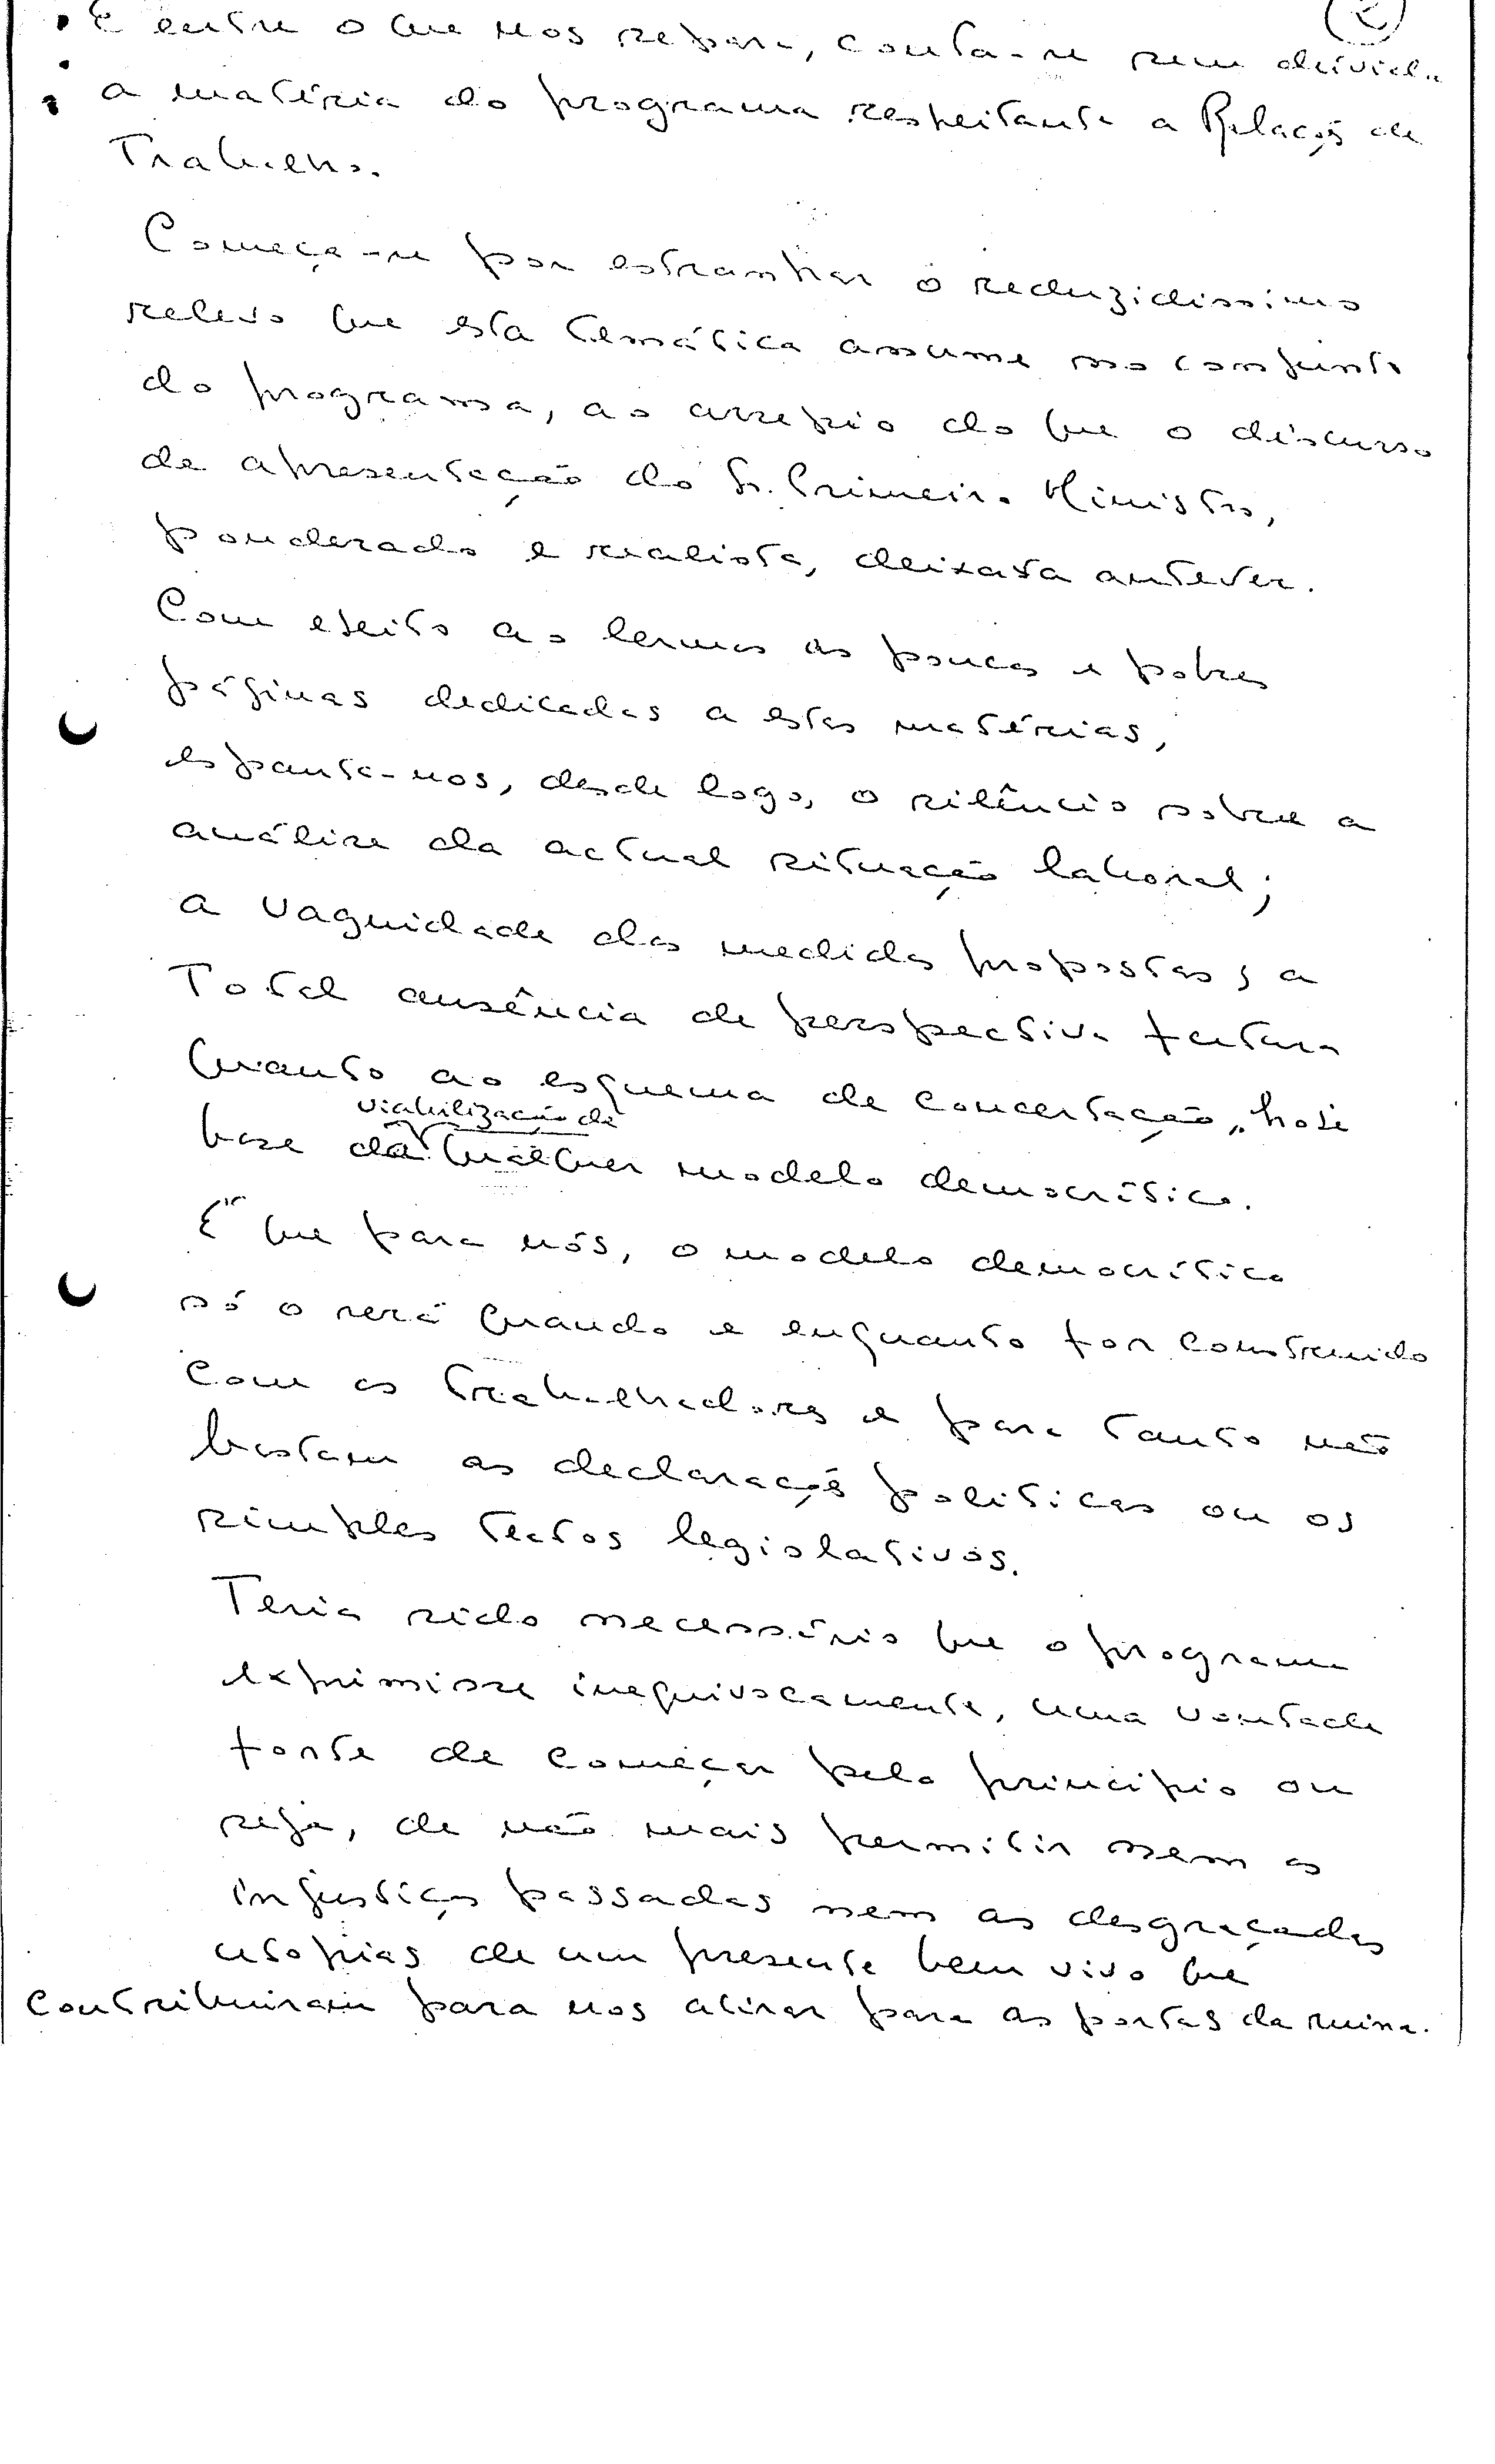 2
E entre o que nos separa, conta-se sem dúvida
a matéria do programa respeitante a Relações de
Trabalho.
Começa-se por estranhar o reduzidissimo
relevo que esta temática assume no conjunto
do programa, ao arrepio do que o discurso
de apresentação do Sr. Primeiro Ministro,
ponderado e realista, deixava antever.
Com efeito ao lermos as poucas e pobres
páginas dedicadas a estas matérias,
espanta-nos, desde logo, o silêncio sobre a
análise da actual situação laboral;
a vaguidade das medidas propostas; a
total ausência de perspectiva futura
quanto ao esquema de concertação, hoje
viabilização de
base da qualquer modelo democrático.
É que para nós, o modelo democrático
só o será quando e enquanto for construido
com os trabalhadores e para tanto não
bastam as declarações politicas ou os
simples textos legislativos.
Teria sido necessário que o programa
exprimisse inequivocamente, uma vontade
forte de começar pelo principio ou
seja, de não mais permitir nem as
injustiças passadas nem as desgraçadas
utopias de um presente bem vivo que
contribuiram para nos atirar para as portas da ruina.